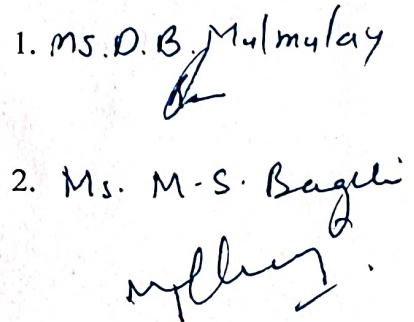 1. Ms. D. B. Mulmulay
2. Ms. M-S. Bagchi